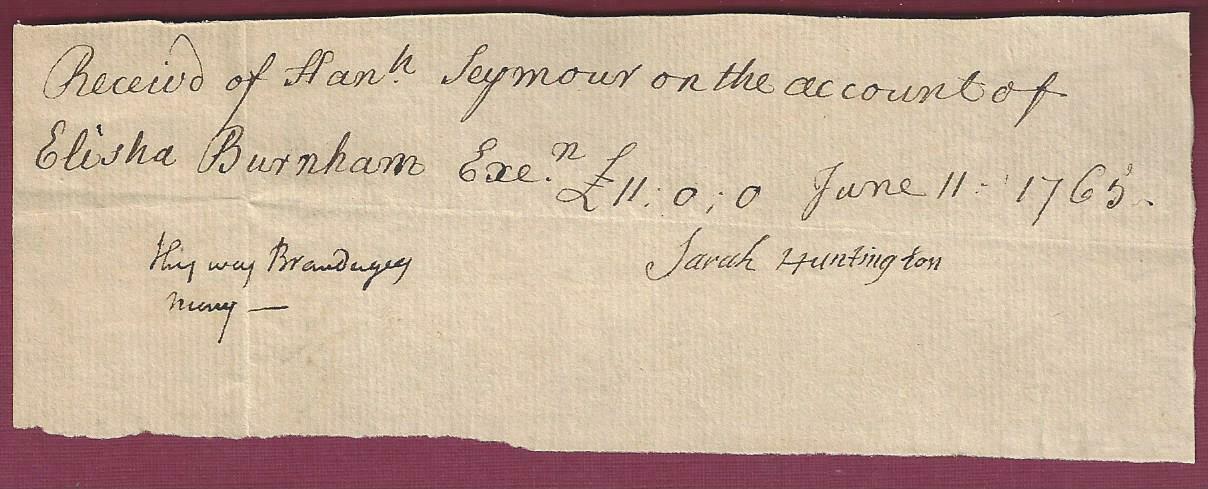 Receivd of Hanh Seymour on the account of
Elisha Burnham Exe.n £11:0;0 June 11 : 1765
This way Brandugeys
Sarah Huntington
money —